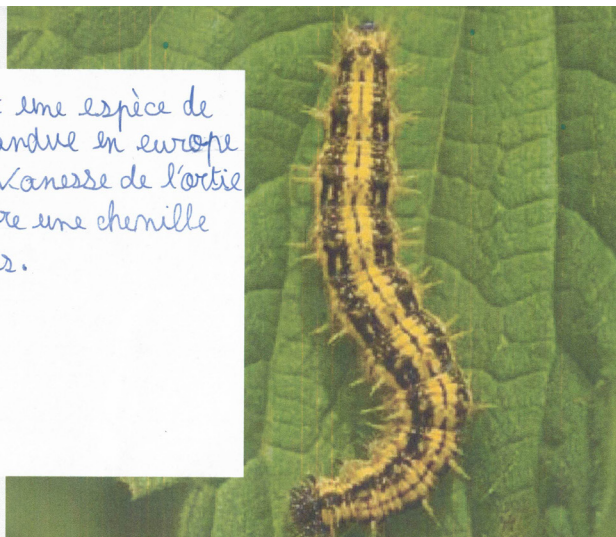 une espèce de
andue en europe
Vanesse de l'ortie
re une chenille
s.